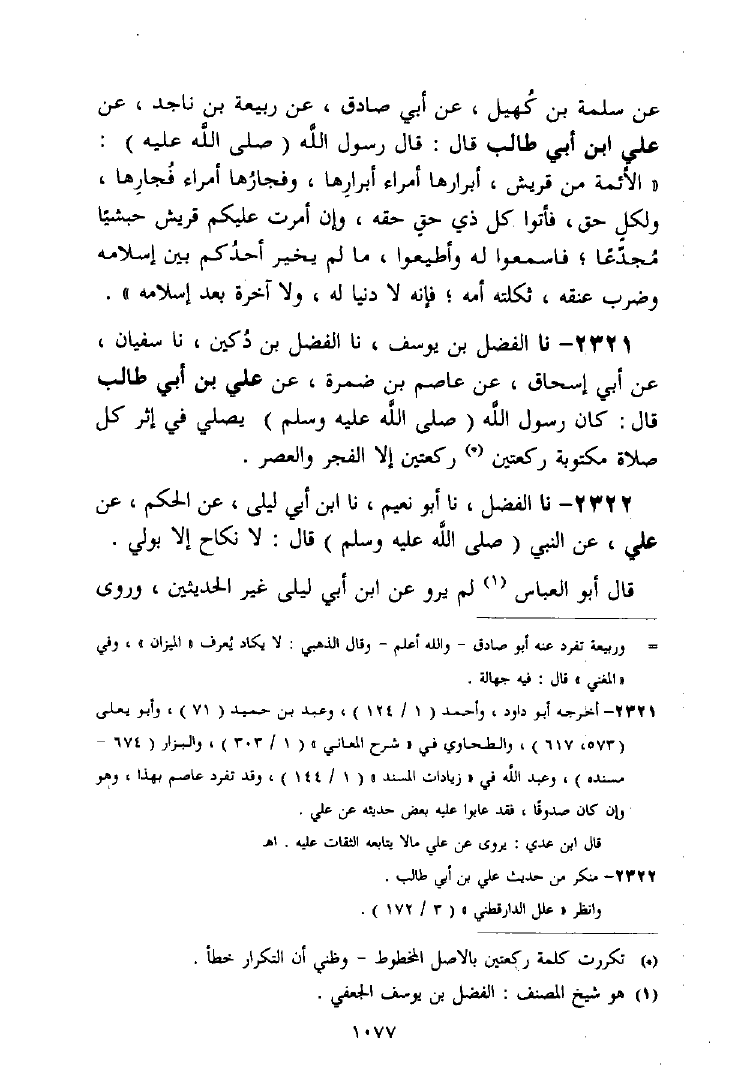 عن سلمة بن كُهيل ، عن أبي صادق ، عن ربيعة بن ناجد ، عن
علي ابن أبي طالب قال : قال رسول اللَّه ( صلى اللَّه عليه ) :
« الأئمة من قريش ، أبرارها أمراء أبرارِها ، وفجارُها أمراء فُجارِها ،
ولكلٍ حق ، فأتوا كل ذي حقٍ حقه ، وإن أمرت عليكم قريش حبشيًا
مُجدَّعًا ؛ فاسمعوا له وأطيعوا ، ما لم يخير أحدُكم بين إسلامه
وضرب عنقه ، ثكلته أمه ؛ فإنه لا دنيا له ، ولا آخرة بعد إسلامه » .
٢٣٢١- نا الفضل بن يوسف ، نا الفضل بن دُكين ، نا سفيان ،
عن أبي إسحاق ، عن عاصم بن ضمرة ، عن علي بن أبي طالب
قال : كان رسول اللَّه ( صلى اللَّه عليه وسلم ) يصلي في إثر كل
صلاة مكتوبة ركعتين (*) ركعتين إلا الفجر والعصر .
٢٣٢٢- نا الفضل ، نا أبو نعيم ، نا ابن أبي ليلى ، عن الحكم ، عن
علي ، عن النبي ( صلى اللَّه عليه وسلم ) قال : لا نكاح إلا بولي .
قال أبو العباس (١) لم يرو عن ابن أبي ليلى غير الحديثين ، وروى
= وربيعة تفرد عنه أبو صادق - والله أعلم - وقال الذهبي : لا يكاد يُعرف « الميزان » ، وفي
« المغني » قال : فيه جهالة .
٢٣٢١- أخرجه أبو داود ، وأحمد ( ١ / ١٢٤ ) ، وعبد بن حميد ( ٧١ ) ، وأبو يعلى
( ٥٧٣، ٦١٧ ) ، والطحاوي في « شرح المعاني » ( ١ / ٣٠٣ ) ، والبزار ( ٦٧٤ -
مسنده ) ، وعبد اللَّه في « زيادات المسند » ( ١ / ١٤٤ ) ، وقد تفرد عاصم بهذا ، وهو
وإن كان صدوقًا ، فقد عابوا عليه بعض حديثه عن علي .
قال ابن عدي : يروى عن علي مالا يتابعه الثقات عليه . اهـ
٢٣٢٢- منكر من حديث علي بن أبي طالب .
وانظر « علل الدارقطني » ( ٣ / ١٧٢ ) .
(*) تكررت كلمة ركعتين بالاصل المخطوط - وظني أن التكرار خطأ .
(١) هو شيخ المصنف : الفضل بن يوسف الجعفي .
١٠٧٧